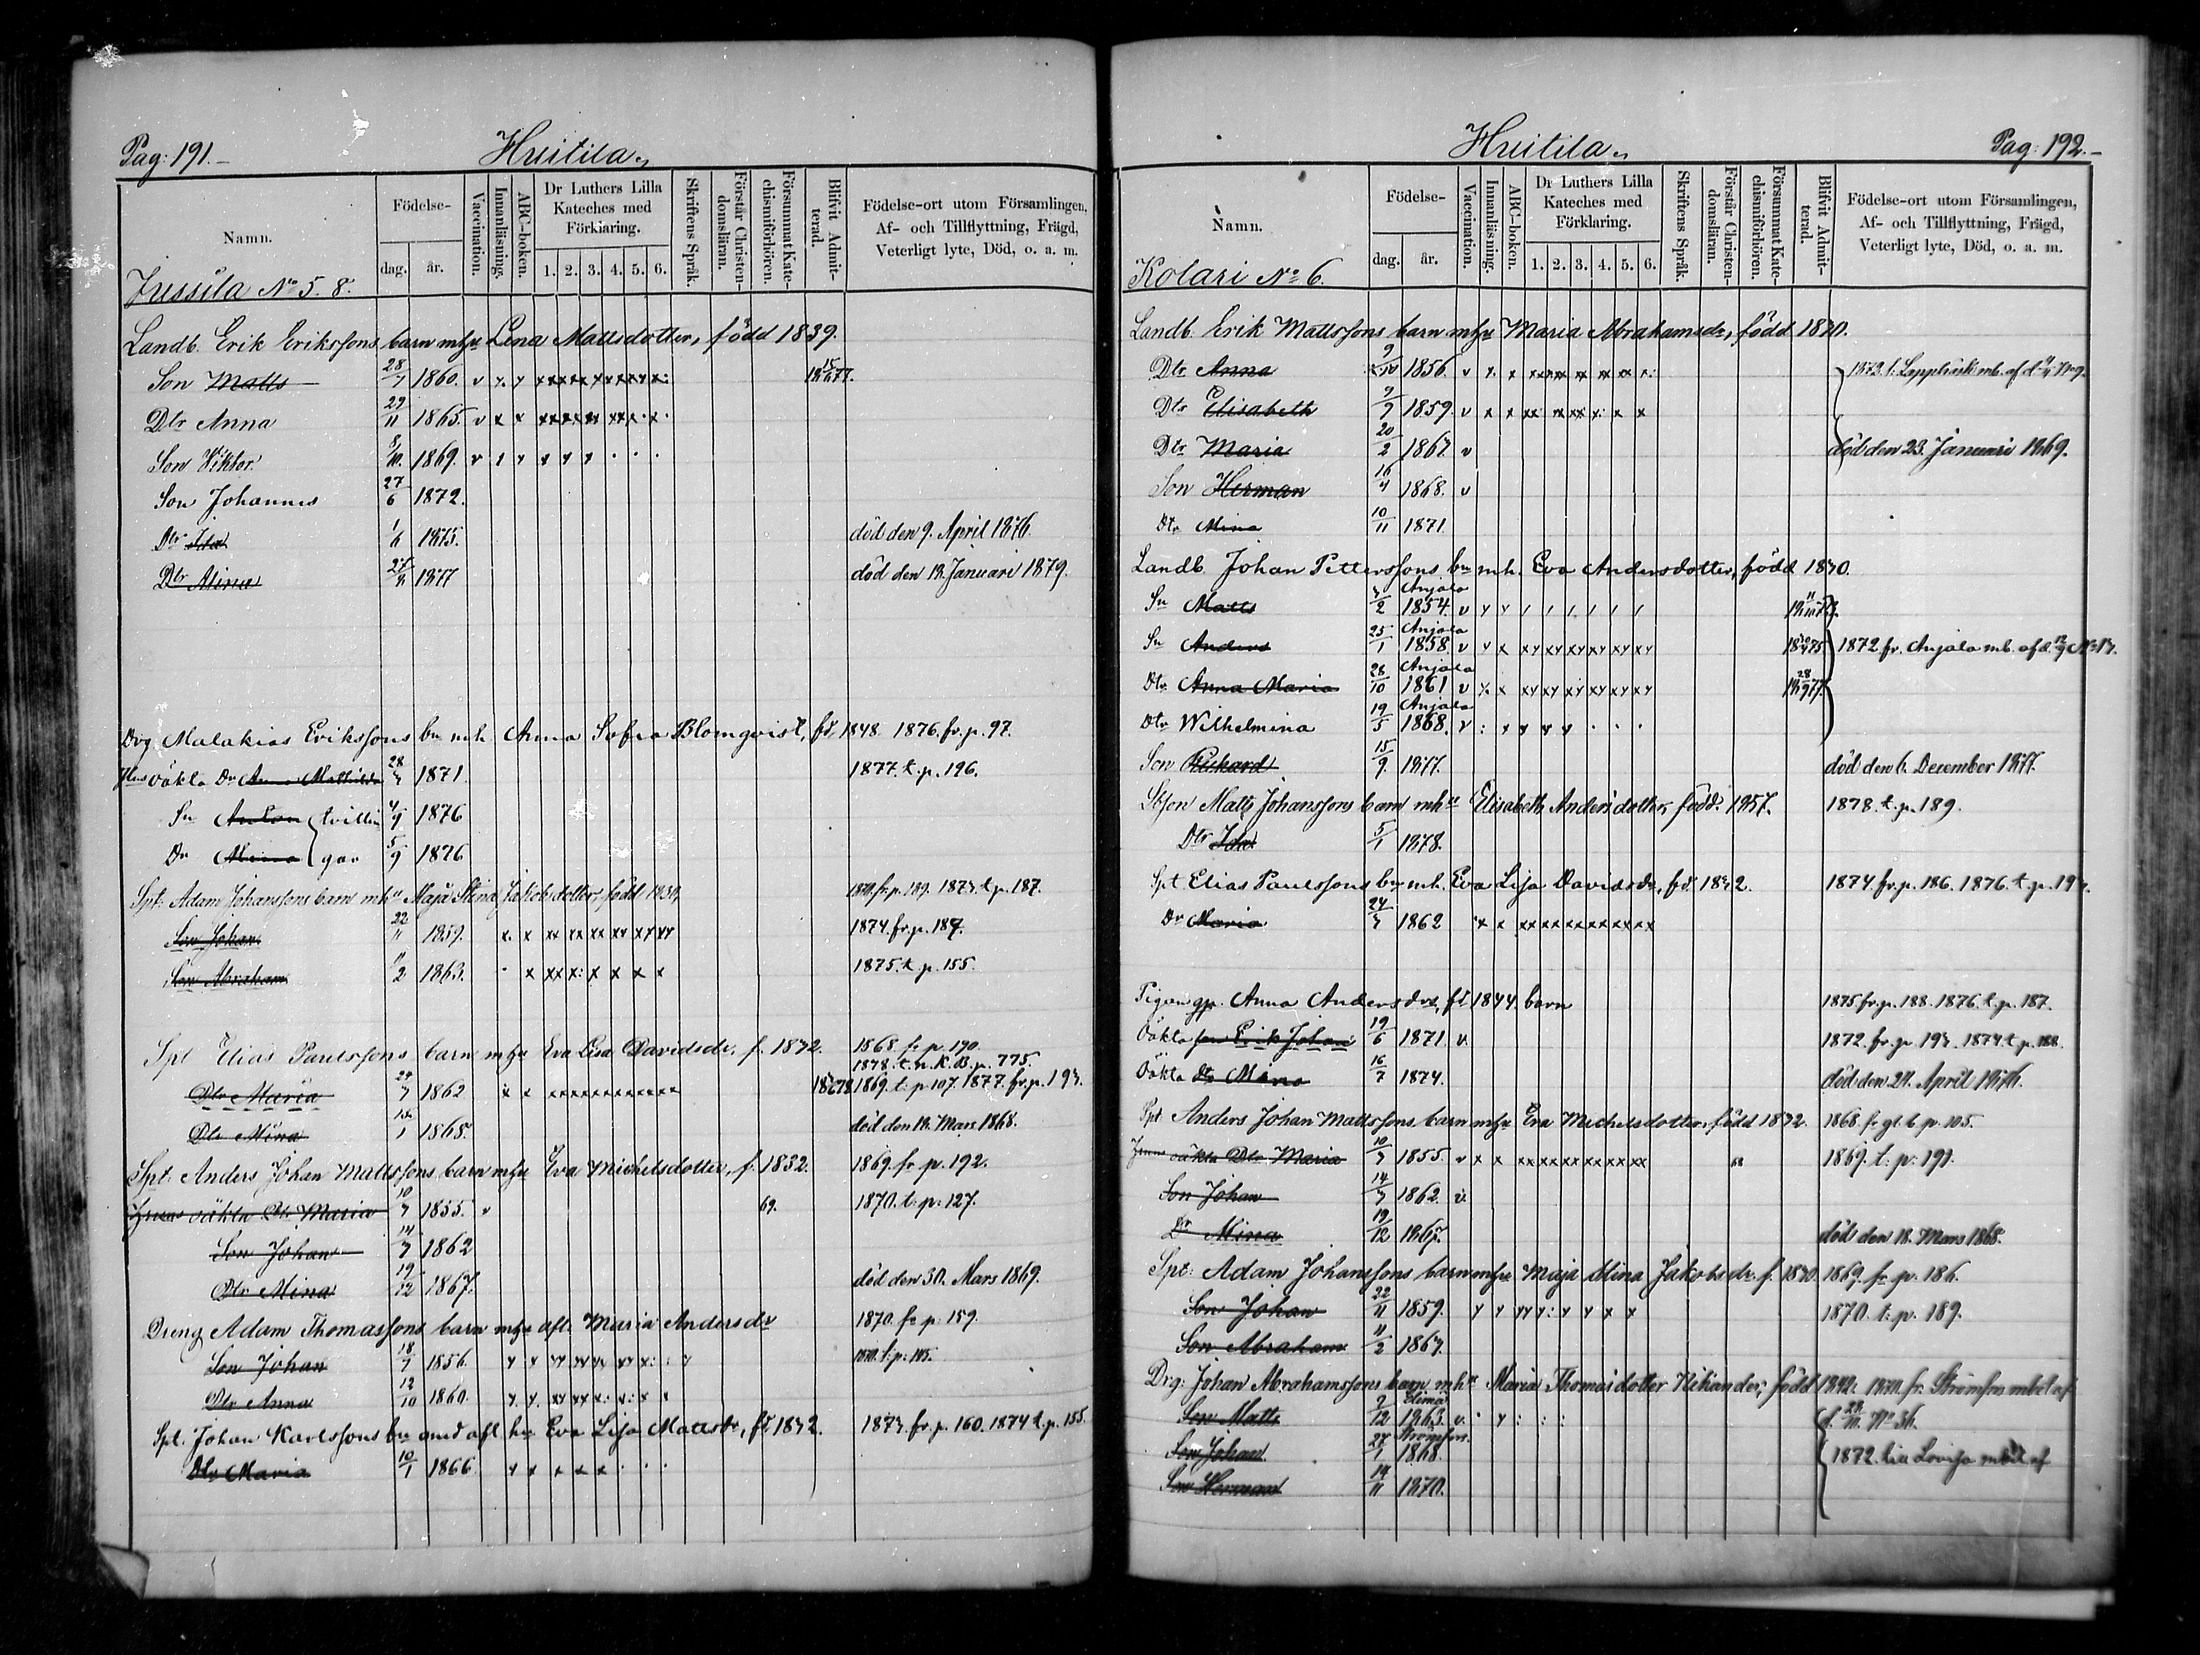 Pag: 191.
Huitila.
Namn.
Födelse-
dag.
år.
Vaccination.
Innanläsning.
ABC-boken.
Dr Luthers Lilla
Kateches med
Förklaring.
1. 2. 3. 4. 5. 6.
Skriftens Språk.
Förstår Christen-
domsläran.
Försummat Kate-
chismiförhören.
Blifvit Admit-
terad.
Födelse-ort utom Församlingen,
Af- och Tillflyttning, Frägd,
Veterligt lyte, Död, o. a. m.
Jussila No 5. 8.
Landb. Erik Erikssons barn m hu Lena Mattsdotter, född 1839.
Son Matts 28/7 1860. v
Dtr Anna 29/11 1865. v
Son Viktor 8/10 1869. v
Son Johannes 27/6 1872.
Dtr Ida 1875. död den 9. April 1876.
Dtr Alina 1877 död den Januari 1879.
Drg Malakias Erikssons bn m h Anna Sofia Blomqvist, fd 1848. 1876. fr. p. 97.
oäkta Dr Anna Mathilda 28/7 1871 1877. t. p. 196.
Sn Anton (tvillin 4/9 1876
Dr (gar 5/9 1876
Spt. Adam Johanssons barn m hu Maja Stina Jakobsdotter, född 1830, 1870. fr. p. 189. 1873. t. p. 187.
Son Johan 22/11 1859. 1874. fr. p. 187.
Son Abraham 11/2 1863. 1875. t. p. 155.
Spt Elias Paulssons barn m hu Eva Lisa Davidsdr. f. 1832. 1868. fr p 190.
1878. t. n. K. B. p. 775.
Dtr Maria 24/7 1862 1869. t. p 107. 1877. fr. p. 193.
Dtr Mina 1865. död den 18. Mars 1868.
Spt. Anders Johan Mattssons barn m hu Eva Michelsdotter, f. 1832. 1869. fr p. 192.
oäkta Dtr Maria 10/7 1855. v 69. 1870. t: p: 127.
Son Johan 14/7 1862
Dtr Mina 19/12 1867. död den 30. Mars 1869.
Dreng Adam Thomassons barn m hu afl. Maria Andersdr 1870. fr p: 159.
Son Johan 18/7 1856.
Dtr Anna 12/10 1860.
Spt. Johan Karlssons bn med afl. hu Eva Lisa Mattsdr, fd 1832. 1873. fr. p. 160. 1874 t. p. 155.
Dtr Maria 10/1 1866
Pag: 192.
Huitila.
Namn.
Födelse-
dag.
år.
Vaccination.
Innanläsning.
ABC-boken.
Dr Luthers Lilla
Kateches med
Förklaring.
1. 2. 3. 4. 5. 6.
Skriftens Språk.
Förstår Christen-
domsläran.
Försummat Kate-
chismiförhören.
Blifvit Admit-
terad.
Födelse-ort utom Församlingen,
Af- och Tillflyttning, Frägd,
Veterligt lyte, Död, o. a. m.
Kolari No 6.
Landb. Erik Mattssons barn m hu Maria Abrahamsdr, född 1830.
Dtr Anna 1856. v
Dtr Elisabeth 9/9 1859. v
Dtr Maria 20/2 1867. v död den 23. Januari 1869.
Son Herman 1868. v
Dtr Mina 10/11 1871.
Landb. Johan Petterssons bn m h. Eva Andersdotter, född 1830.
Anjala
Sn Matts 1854. v
Anjala
Sn Anders 25/1 1858. v 1872 fr. Anjala mb. af d.
Anjala
Dtr Anna Maria 28/10 1861 v
Anjala
Dtr Wilhelmina 19/5 1868. v
Son Rickard 15/9. 1877. död den 6. December 1877.
Stson Matts Johanssons barn m hu Elisabeth Andersdotter, född 1857. 1878. t. p. 189.
Dtr Ida 5/1 1878.
Spt Elias Paulssons bn m h. Eva Lisa Davidsdr, fd 1832. 1874. fr. p. 186. 1876. t. p. 193.
Dr Maria 24/7 1862
Pigan Anna Andersdrs, fd 1844. barn 1875 fr. p. 188. 1876. t. p. 187.
Oäkta son Erik Johan 19/6 1871 v. 1872. fr. p. 193. 1874 t. p. 188.
Oäkta Dtr Mina 16/7 1874. död den 21. April 1876.
Spt. Anders Johan Mattssons barn m hu Eva Michelsdotter, född 1832. 1868. fr gl. b p. 105.
oäkta Dtr Maria 10/7 1855. v 68 1869. t: p: 191.
Son Johan 14/7 1862. v.
Dr Mina 19/12 1867. död den 18. Mars 1868.
Spt: Adam Johanssons barn m hu Maja Stina Jakobsdr. f. 1830. 1869. fr p. 186.
Son Johan 22/11 1859. 1870. t: p. 189.
Son Abraham 11/2 1863.
Drg: Johan Abrahamssons barn m hu Maria Thomasdotter Nikander, född 1842. 1870. fr. Strömfors mbet af
Elimä
Son Matts 9/12 1863. v. No 36.
Strömfors.
Son Johan 27/1 1868. 1872. till Lovisa mbet af
Son Herman 14/11 1870.